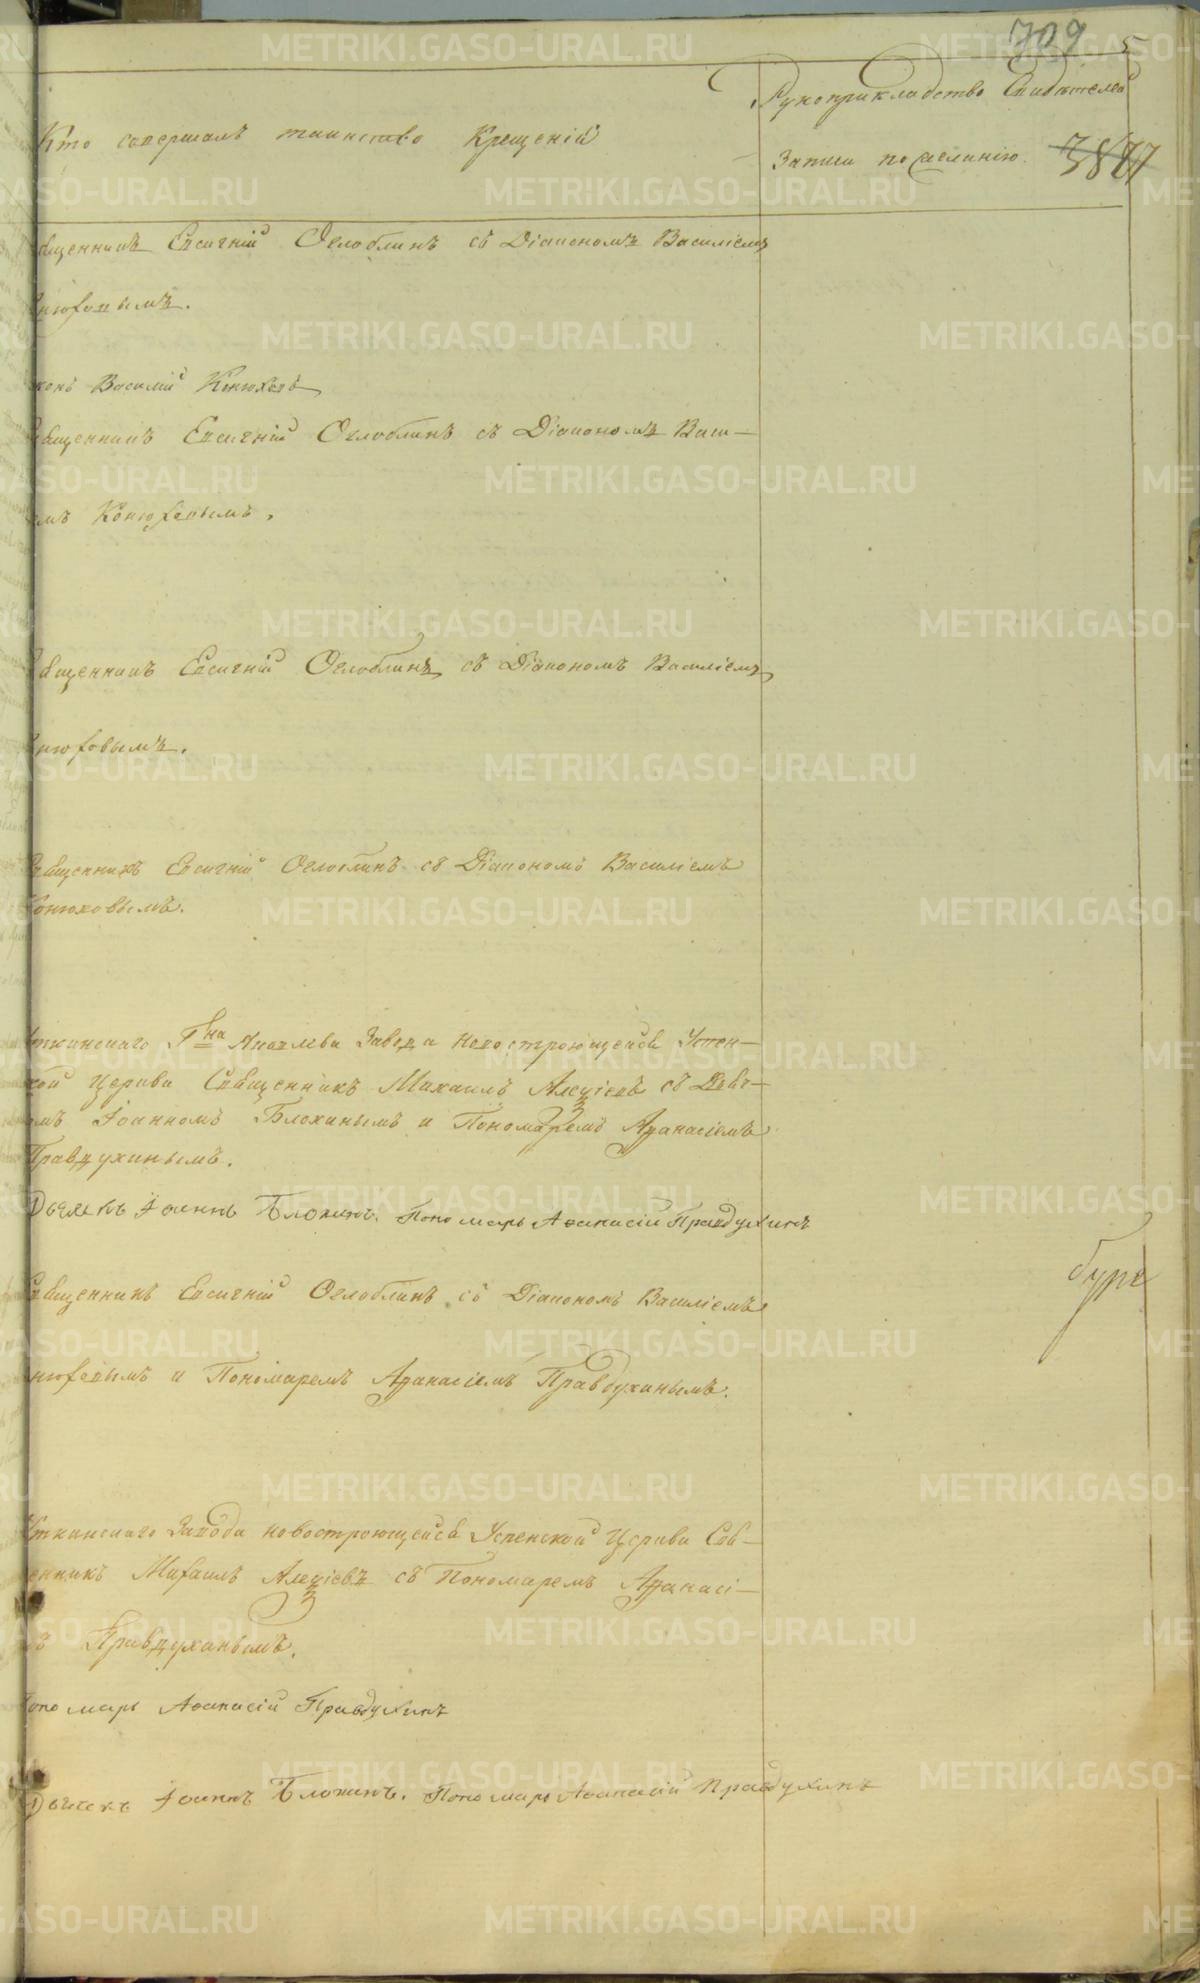 709
5
Рукоприкладство Свидетелей
Кто совершалъ таинство Крещенія
Записи по желанію.
3877
вященникъ Евсигній Оглоблинъ съ Діакономъ Василіемъ
нюховымъ.
конъ Василій Конюховъ
Священникъ Евсигній Оглоблинъ съ Діакономъ Васи-
емъ Конюховымъ.
Священникъ Евсигній Оглоблинъ съ Діакономъ Василіемъ
нюховымъ.
Священникъ Евсигній Оглоблинъ съ Діакономъ Василіемъ
Конюховымъ.
Уткинскаго Гна Яковлева Завода новостроющейся Успен-
кой Церкви Священникъ Михаилъ Алеѯіевъ съ Дьяч-
омъ Іоанномъ Блохинымъ и Пономаремъ Аѳанасіемъ
Правдухинымъ.
Дьячекъ Іоаннъ Блохинъ. Пономарь Аѳанасій Правдухинъ
Священникъ Евсигній Оглоблинъ съ Діакономъ Василіемъ
нюховымъ и Пономаремъ Аѳанасіемъ Правдухинымъ.
Уткинскаго Завода новостроющейся Успенской Церкви Свя-
енникъ Михаилъ Алеѯіевъ съ Пономаремъ Аѳанасі-
мъ Правдухинымъ.
Пономарь Аѳанасій Правдухинъ
Дьячекъ Іоаннъ Блохинъ. Пономарь Аѳанасій Правдухинъ
METRIKI.GASO-URAL.RU